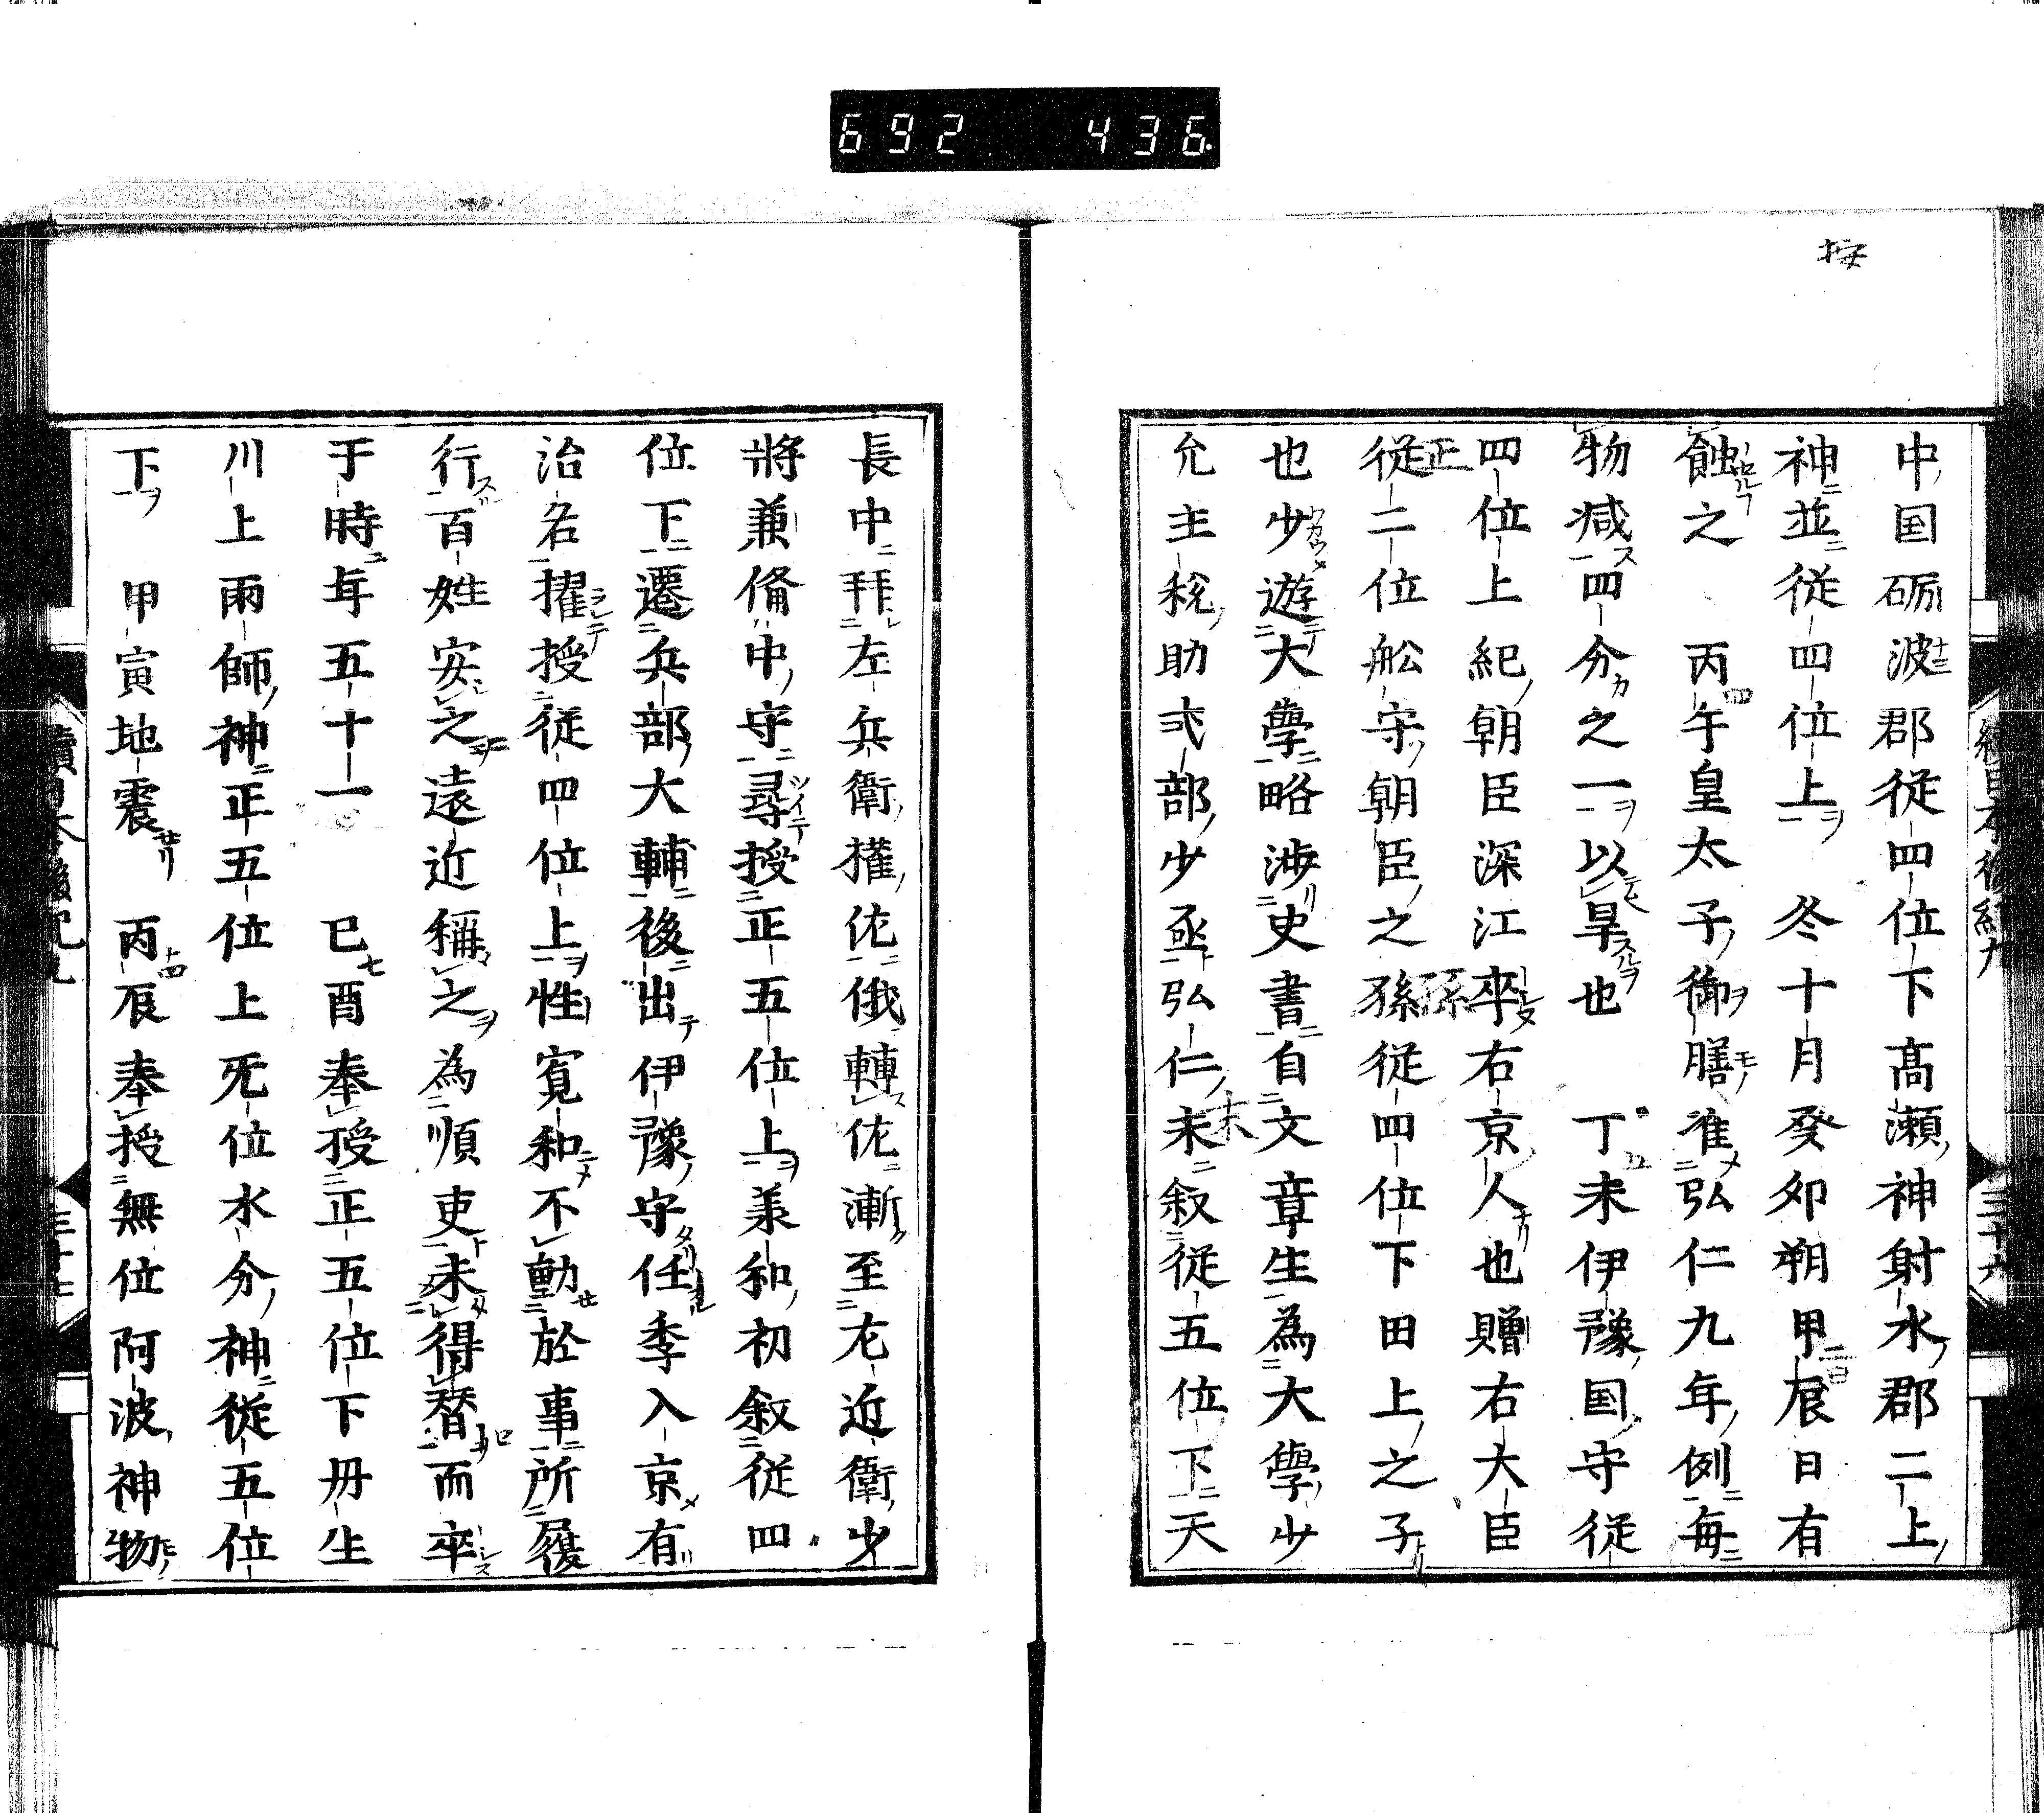 692 436
按
中国砺波郡従四位下高瀬神射水郡二上
神並従四位上　冬十月癸卯朔甲辰日有
蝕之　丙午皇太子御膳准弘仁九年例毎
物減四分之一以旱也　丁未伊豫国守従
四位上紀朝臣深江卒右京人也贈右大臣
従二位舩守朝臣之孫従四位下田上之子
也少遊大學略渉史書自文章生為大學少
允主税助式部少丞弘仁末叙従五位下天
長中拜左兵衛權佐俄轉佐漸至左近衛少
將兼備中守尋授正五位上兼和初叙従四
位下遷兵部大輔後出伊豫守任季入京有
治名擢授従四位上性寛和不動於事所履
行百姓安之遠近稱之為順吏未得替而卒
于時年五十一　已酉奉授正五位下丹生
川上雨師神正五位上旡位水分神従五位
下　甲寅地震　丙辰奉授無位阿波神物